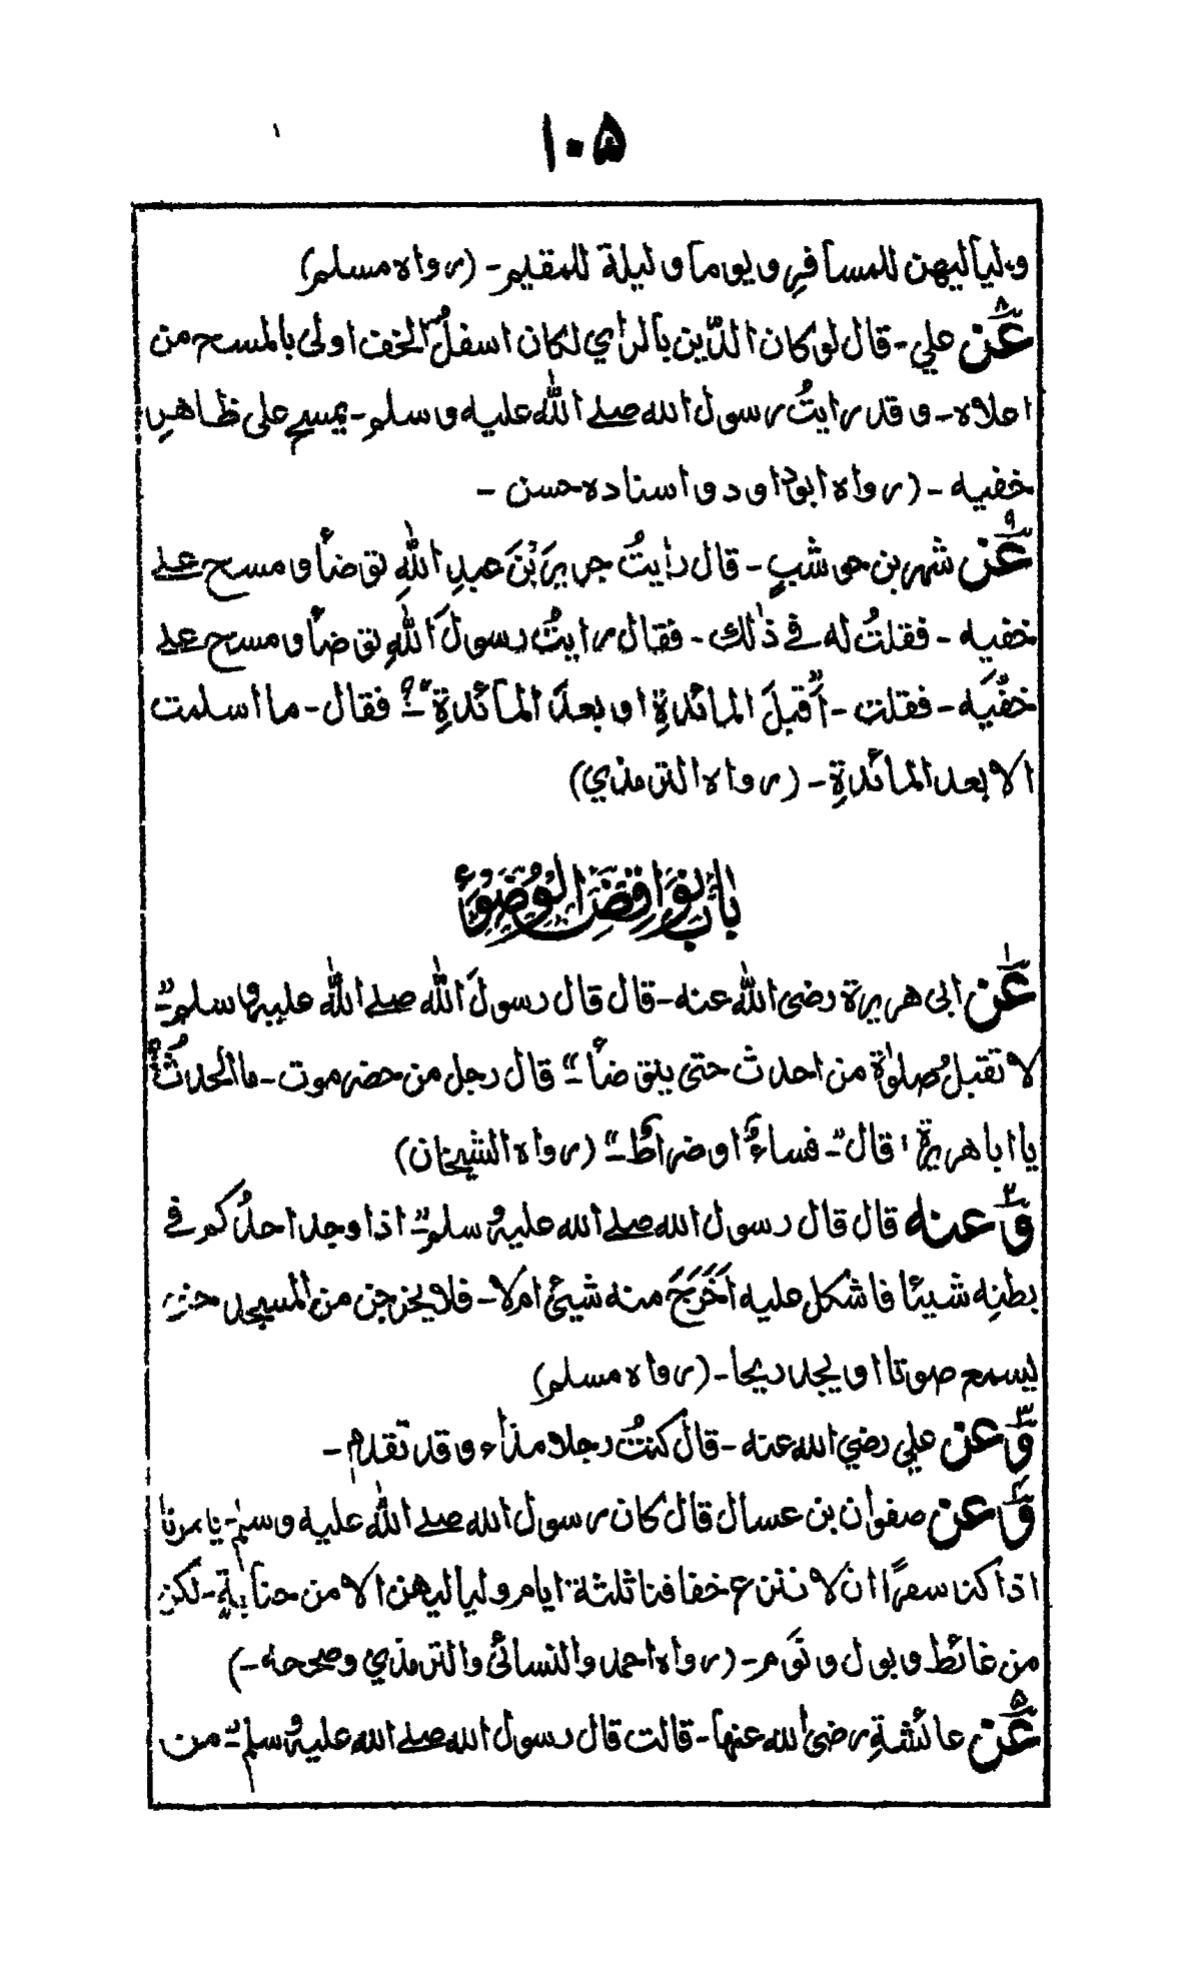 ۱۰۵
ولياليهن للمسافر ويوما وليلة للمقيم - (رواه مسلم)
۸ عَن علي - قال لو كان الدّين بالرأي لكان اسفلُ الخف اولى بالمسح من
اعلاه - وقد رايتُ رسول الله صلے اللّٰه عليه وسلم - يمسح على ظاهر
خفيه - (رواه ابوداود و اسناده حسن -
۹ عَن شهر بن حوشبٍ - قال رأيتُ جريرَ بْنَ عبدِ اللّٰهِ توضأ و مسح علے
خفيه - فقلتُ له في ذٰلك - فقال رايتُ رسولَ اللّٰهِ توضأ و مسح علے
خفَّيه - فقلت - "أَقبلَ المائدةِ او بعدَ المائدةِ"؟ فقال - ما اسلمت
الا بعد المائدةِ - (رواه الترمذي)
بابُ نَوَاقِضِ الوُضُوْءِ
۱ عَن ابى هريرة رضى اللّٰه عنه - قال قال رسولَ اللّٰه صلے اللّٰه عليه وسلم - "
لا تقبلُ صلوٰة من احدث حتى يتوضأ" قال رجل من حضرموت - ما الحدثُ
يا ابا هريرة، قال - "فساءٌ او ضراطٌ" - (رواه الشيخان)
۲ وَّعنه قال قال رسول الله صلے الله عليه وسلم - "اذا وجد احدُكم في
بطنِه شيئا فاشكل عليه اَخَرَجَ منه شيئ ام لا - فلا يخرجن من المسجد حتى
يسمع صوتا او يجد ريحا - (رواه مسلم)
۳ وَّعن علي رضي الله عنه - قال كنتُ رجلا مذاء وقد تقدم -
۴ وَّعن صفوان بن عسال قال كان رسول الله صلے اللّٰه عليه وسلم - يامرنا
اذا كنا سفرًا ان لا ننزع خفافنا ثلثة ايام ولياليهن الا من جنابةٍ - لكن
من غائط وبول ونَوم - (رواه احمد والنسائى والترمذي وصححه -)
۵ عَن عائشةِ رضى الله عنها - قالت قال رسول الله صلے الله عليه وسلم - "من